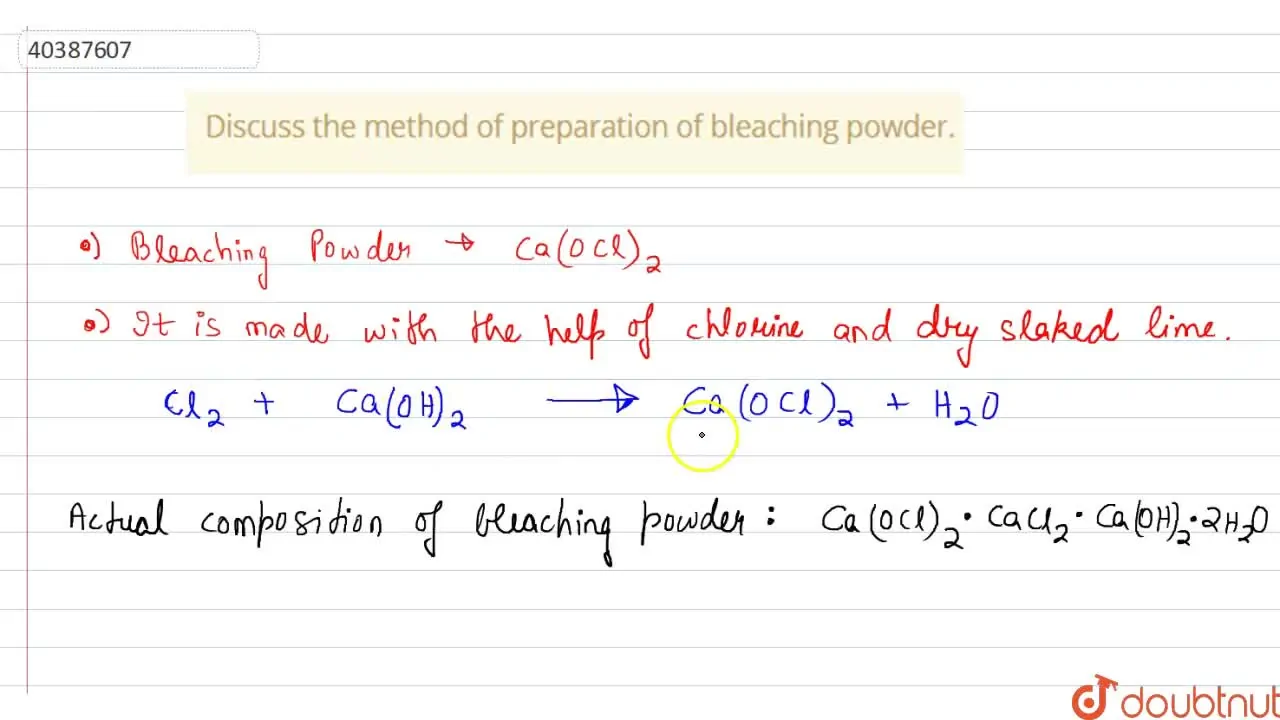 40387607
Discuss the method of preparation of bleaching powder.
•) Bleaching Powder → Ca(OCl)₂
•) It is made with the help of chlorine and dry slaked lime.
Cl₂ + Ca(OH)₂ → Ca(OCl)₂ + H₂O
Actual composition of bleaching powder : Ca(OCl)₂·CaCl₂·Ca(OH)₂·2H₂O
doubtnut